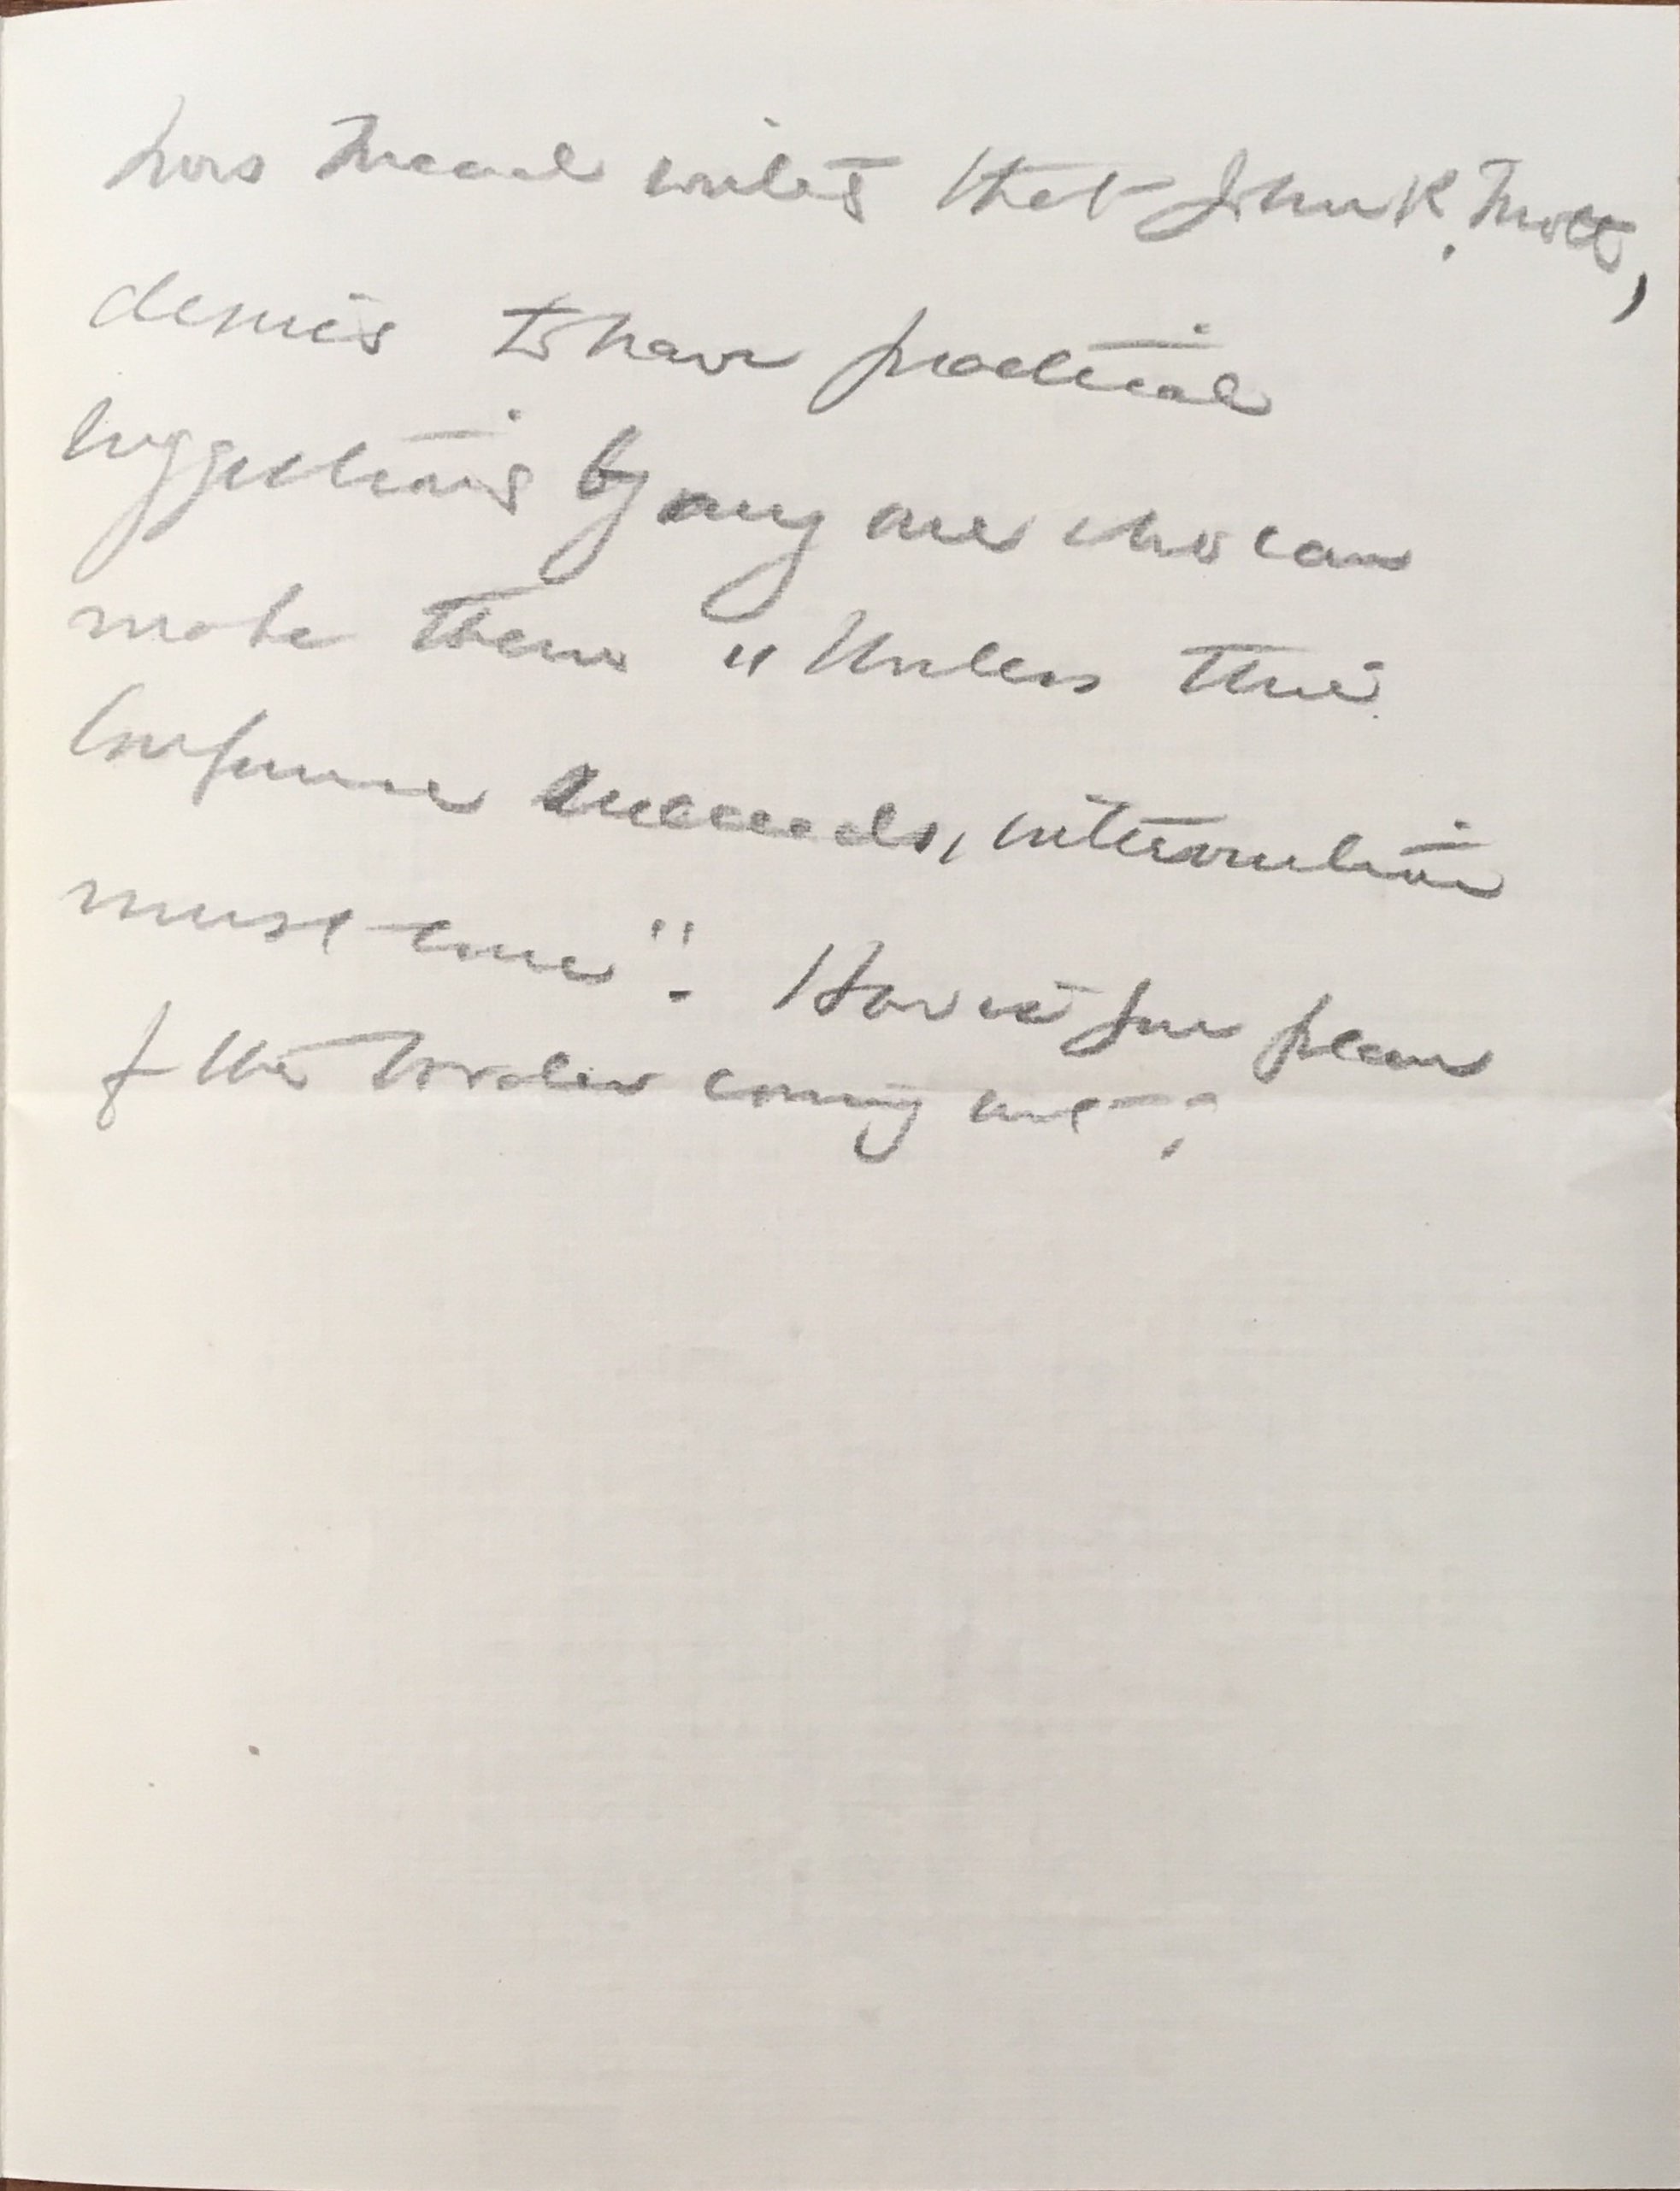 Mrs Mead writes that John R. Mott,
desires to have practical
suggestions by any one who can
make them "Unless this
Conference succeeds, intervention
must come". How is your plan
for the border coming out?